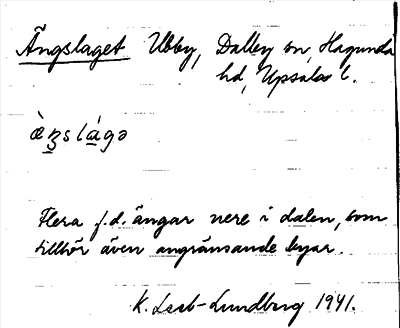 Ängslaget Ubby, Dalby sn, Hagunda
hd, Upsala l.
Flera f.d. ängar nere i dalen, som
tillhör även angränsande byar.
K. Lundberg 1941.